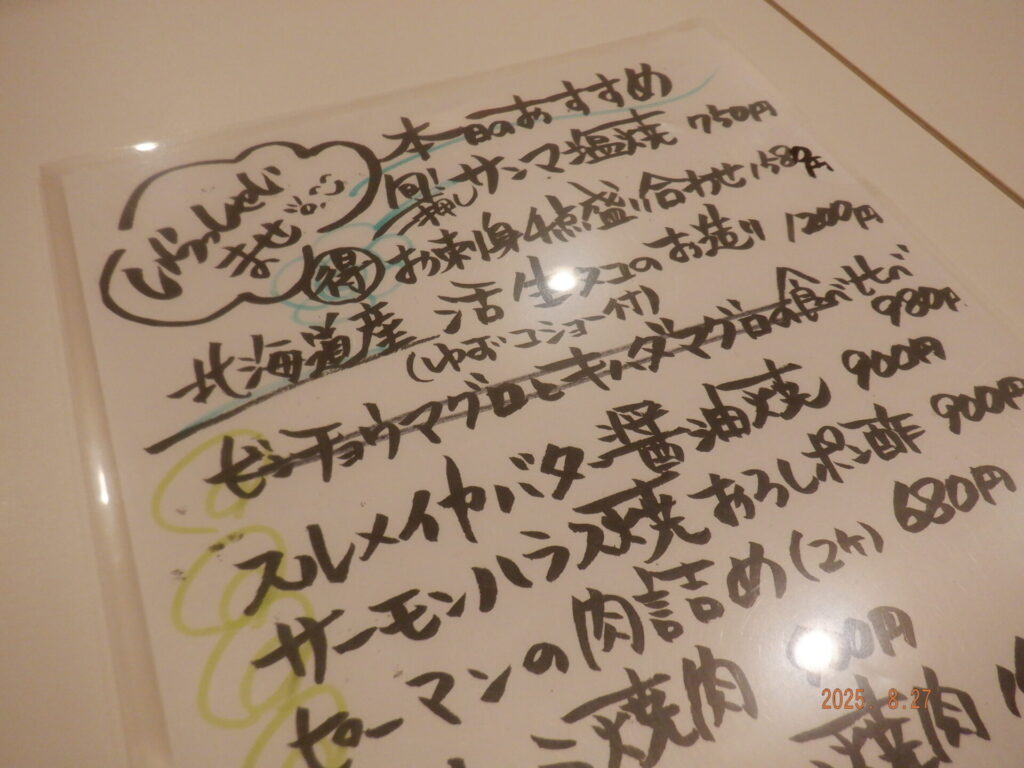 いらっしゃい
ませ
本日のおすすめ
一押し サンマ塩焼 750円
得 お刺身4点盛り合わせ 1580円
北海道産 活 生タコのお造り 1200円
(ゆずコショー付)
ビンチョウマグロとキハダマグロの食べ比べ
980円
スルメイカバター醤油焼 900円
サーモンハラス焼 おろしポン酢 900円
ピーマンの肉詰め(2ケ) 680円
焼肉
焼肉
2025. 8.27